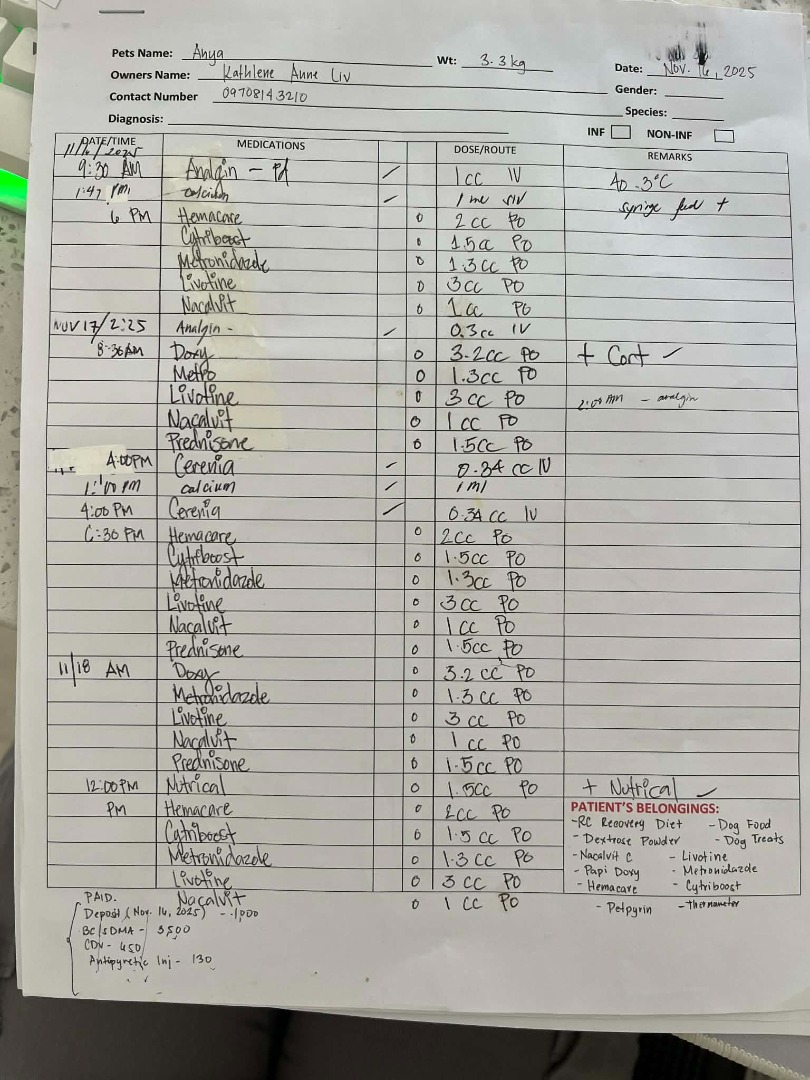 Pets Name: Anya Wt: 3.3kg
Date: Nov. 16, 2025
Owners Name: Kathlene Anne Liv
Gender:
Contact Number 09708143210
Species:
Diagnosis:
INF NON-INF
DATE/TIME MEDICATIONS DOSE/ROUTE REMARKS
11/16/2025
9:30 AM Analgin - Pd / 1cc IV 40.3°C
1:47 PM calcium / 1 ml SIV syringe fed +
6 PM Hemacare 0 2cc PO
Cytriboost 0 1.5cc PO
Metronidazole 0 1.3cc PO
Livotine 0 3cc PO
Nacalvit 0 1cc PO
NOV 17/2:25 Analgin - / 0.3cc IV
8:36AM Doxy 0 3.2cc PO + Cort ✓
Metro 0 1.3cc PO
Livotine 0 3cc PO 2:00 AM - analgin
Nacalvit 0 1cc PO
Prednisone 0 1.5cc PO
4:00PM Cerenia / 0.34cc IV
PM calcium / 1ml
4:00 PM Cerenia / 0.34cc IV
6:30 PM Hemacare 0 2cc PO
Cytriboost 0 1.5cc PO
Metronidazole 0 1.3cc PO
Livotine 0 3cc PO
Nacalvit 0 1cc PO
Prednisone 0 1.5cc PO
11/18 AM Doxy 0 3.2cc PO
Metronidazole 0 1.3cc PO
Livotine 0 3cc PO
Nacalvit 0 1cc PO
Prednisone 0 1.5cc PO
12:00PM Nutrical 0 1.5cc PO + Nutrical ✓
PM Hemacare 0 2cc PO
Cytriboost 0 1.5cc PO
Metronidazole 0 1.3cc PO
Livotine 0 3cc PO
Nacalvit 0 1cc PO
PATIENT'S BELONGINGS:
-RC Recovery Diet - Dog Food
- Dextrose Powder - Dog Treats
-Nacalvit C - Livotine
- Papi Doxy - Metronidazole
- Hemacare - Cytriboost
- Petpyrin - thermometer
PAID.
Deposit (Nov. 16, 2025) - 1,000
BC/SDMA - 3,500
CDV - 450
Antipyretic Inj - 130